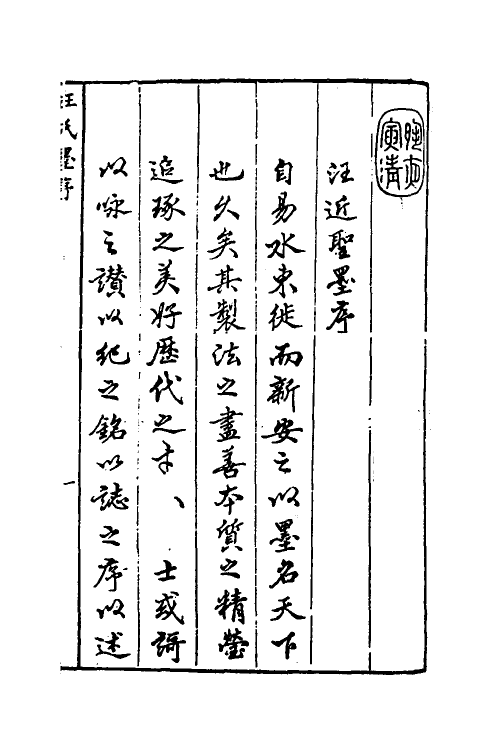 汪近聖墨序
自易水東徙而新安之以墨名天下
也久矣其製法之盡善本質之精瑩
追琢之美好歷代之才、士或謌
以咏之讃以紀之銘以誌之序以述
汪氏墨序
一